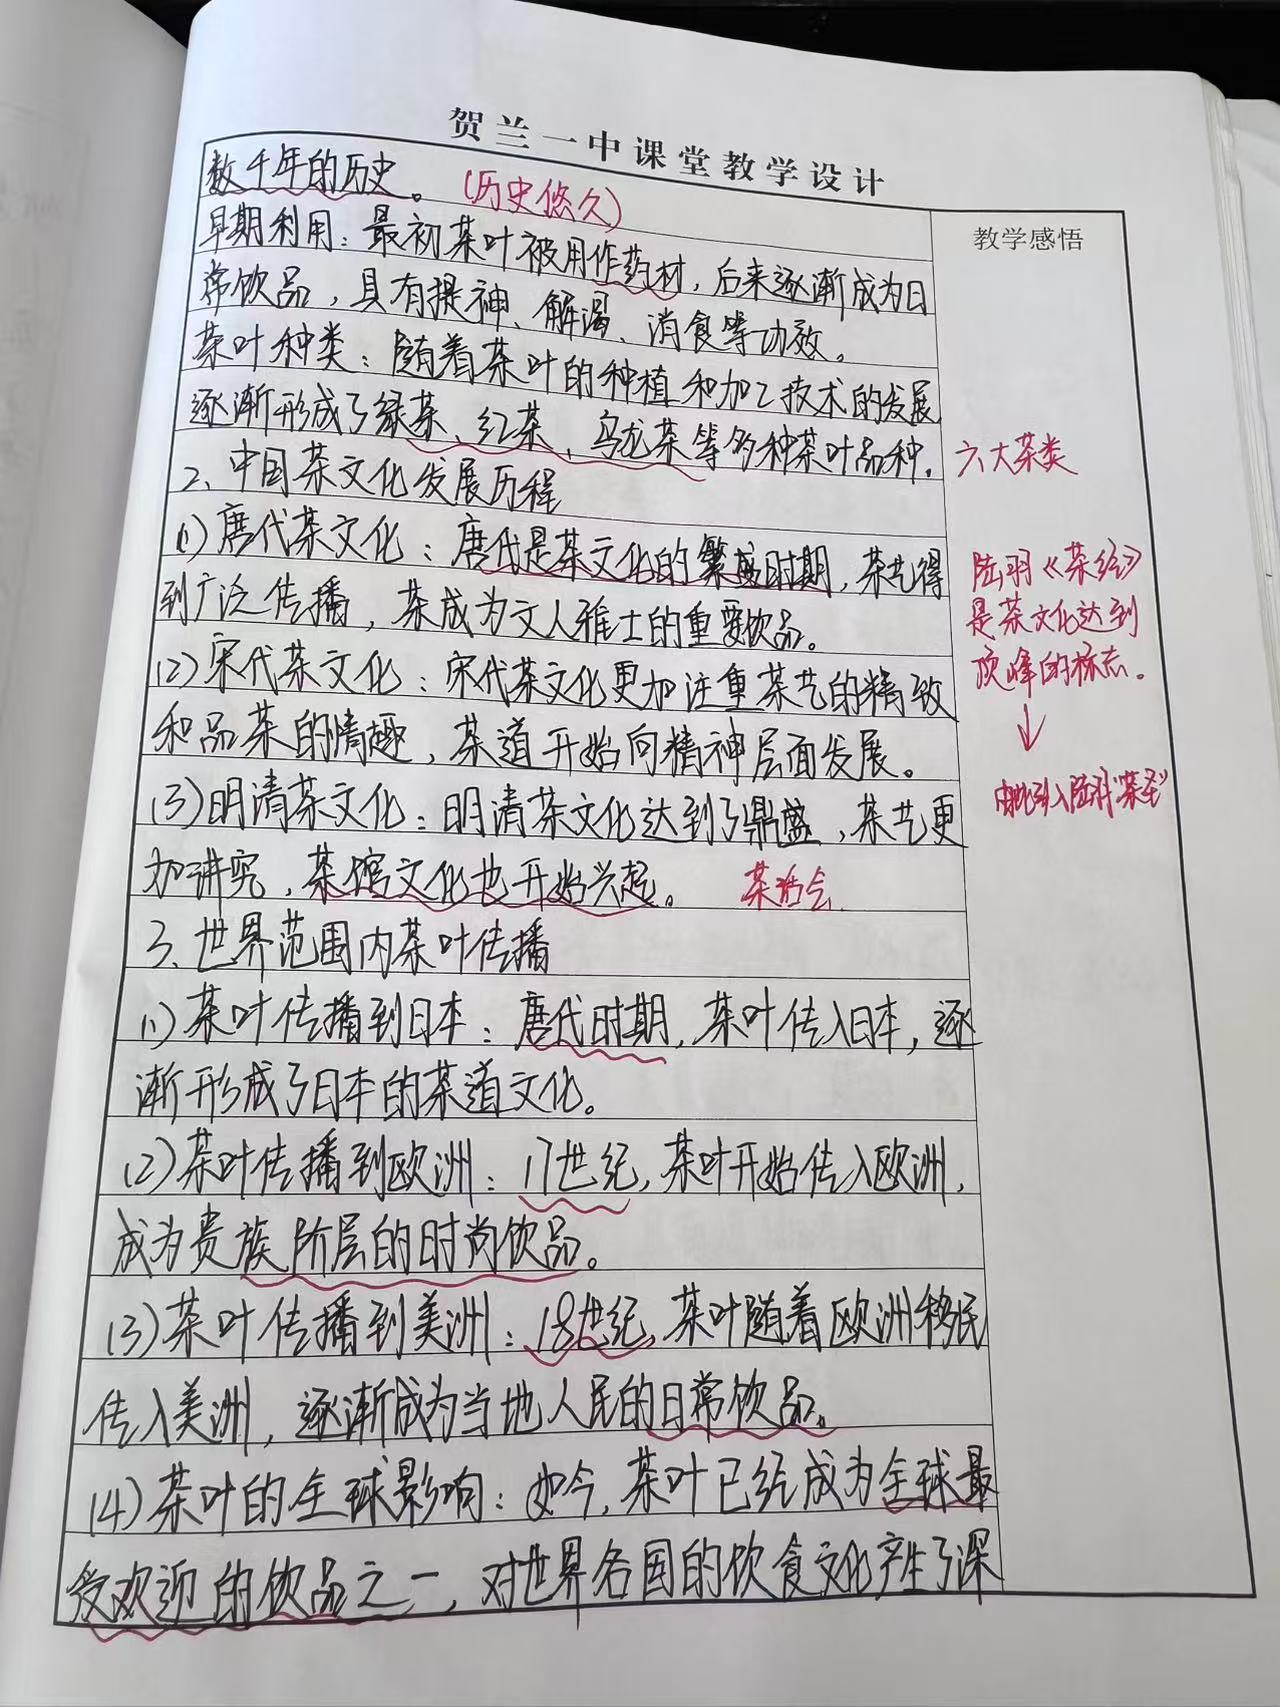 贺兰一中课堂教学设计
数千年的历史。(历史悠久)
早期利用：最初茶叶被用作药材，后来逐渐成为日
常饮品，具有提神、解渴、消食等功效。
茶叶种类：随着茶叶的种植和加工技术的发展
逐渐形成了绿茶、红茶、乌龙茶等多种茶叶品种.
2、中国茶文化发展历程
(1)唐代茶文化：唐代是茶文化的繁盛时期，茶艺得
到广泛传播，茶成为文人雅士的重要饮品。
(2)宋代茶文化：宋代茶文化更加注重茶艺的精致
和品茶的情趣，茶道开始向精神层面发展。
(3)明清茶文化：明清茶文化达到了鼎盛，茶艺更
加讲究，茶馆文化也开始兴起。 茶话会
3、世界范围内茶叶传播
(1)茶叶传播到日本：唐代时期，茶叶传入日本，逐
渐形成了日本的茶道文化。
(2)茶叶传播到欧洲：17世纪，茶叶开始传入欧洲，
成为贵族阶层的时尚饮品。
(3)茶叶传播到美洲：18世纪，茶叶随着欧洲移民
传入美洲，逐渐成为当地人民的日常饮品。
(4)茶叶的全球影响：如今，茶叶已经成为全球最
受欢迎的饮品之一，对世界各国的饮食文化产生了深
教学感悟
六大茶类
陆羽《茶经》
是茶文化达到
顶峰的标志。
↓
由此引入陆羽“茶圣”